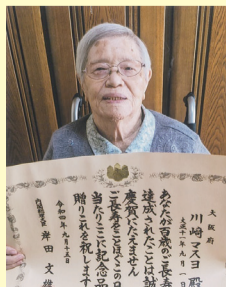 大阪府
川崎マスヨ 殿
大正十一年九月一日
あなたが百歳のご長寿
達成されたことは誠
慶賀にたえません
ご長寿をことほぐこの日
当たりここに記念品
贈りこれを祝します
令和四年九月十五日
内閣総理大臣 岸田 文雄